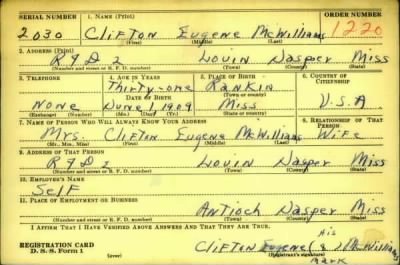 SERIAL NUMBER 1. NAME (Print) ORDER NUMBER
2030 Clifton Eugene McWilliams 1220
(First) (Middle) (Last)
2. ADDRESS (Print)
RFD 2 Louin Jasper Miss
(Number and street or R. F. D. number) (Town) (County) (State)
3. TELEPHONE 4. AGE IN YEARS 5. PLACE OF BIRTH 6. COUNTRY OF CITIZENSHIP
Thirty-one Rankin
DATE OF BIRTH (Town or county)
None June 1 1909 Miss U.S.A
(Exchange) (Number) (Mo.) (Day) (Yr.) (State or country)
7. NAME OF PERSON WHO WILL ALWAYS KNOW YOUR ADDRESS 8. RELATIONSHIP OF THAT PERSON
Mrs. Clifton Eugene McWilliams Wife
(Mr., Mrs., Miss) (First) (Middle) (Last)
9. ADDRESS OF THAT PERSON
RFD 2 Louin Jasper Miss
(Number and street or R. F. D. number) (Town) (County) (State)
10. EMPLOYER'S NAME
Self
11. PLACE OF EMPLOYMENT OR BUSINESS
Antioch Jasper Miss
(Number and street or R. F. D. number) (Town) (County) (State)
I AFFIRM THAT I HAVE VERIFIED ABOVE ANSWERS AND THAT THEY ARE TRUE.
His
REGISTRATION CARD Clifton Eugene McWilliams
D. S. S. Form 1 (over) (Registrant's signature)
mark